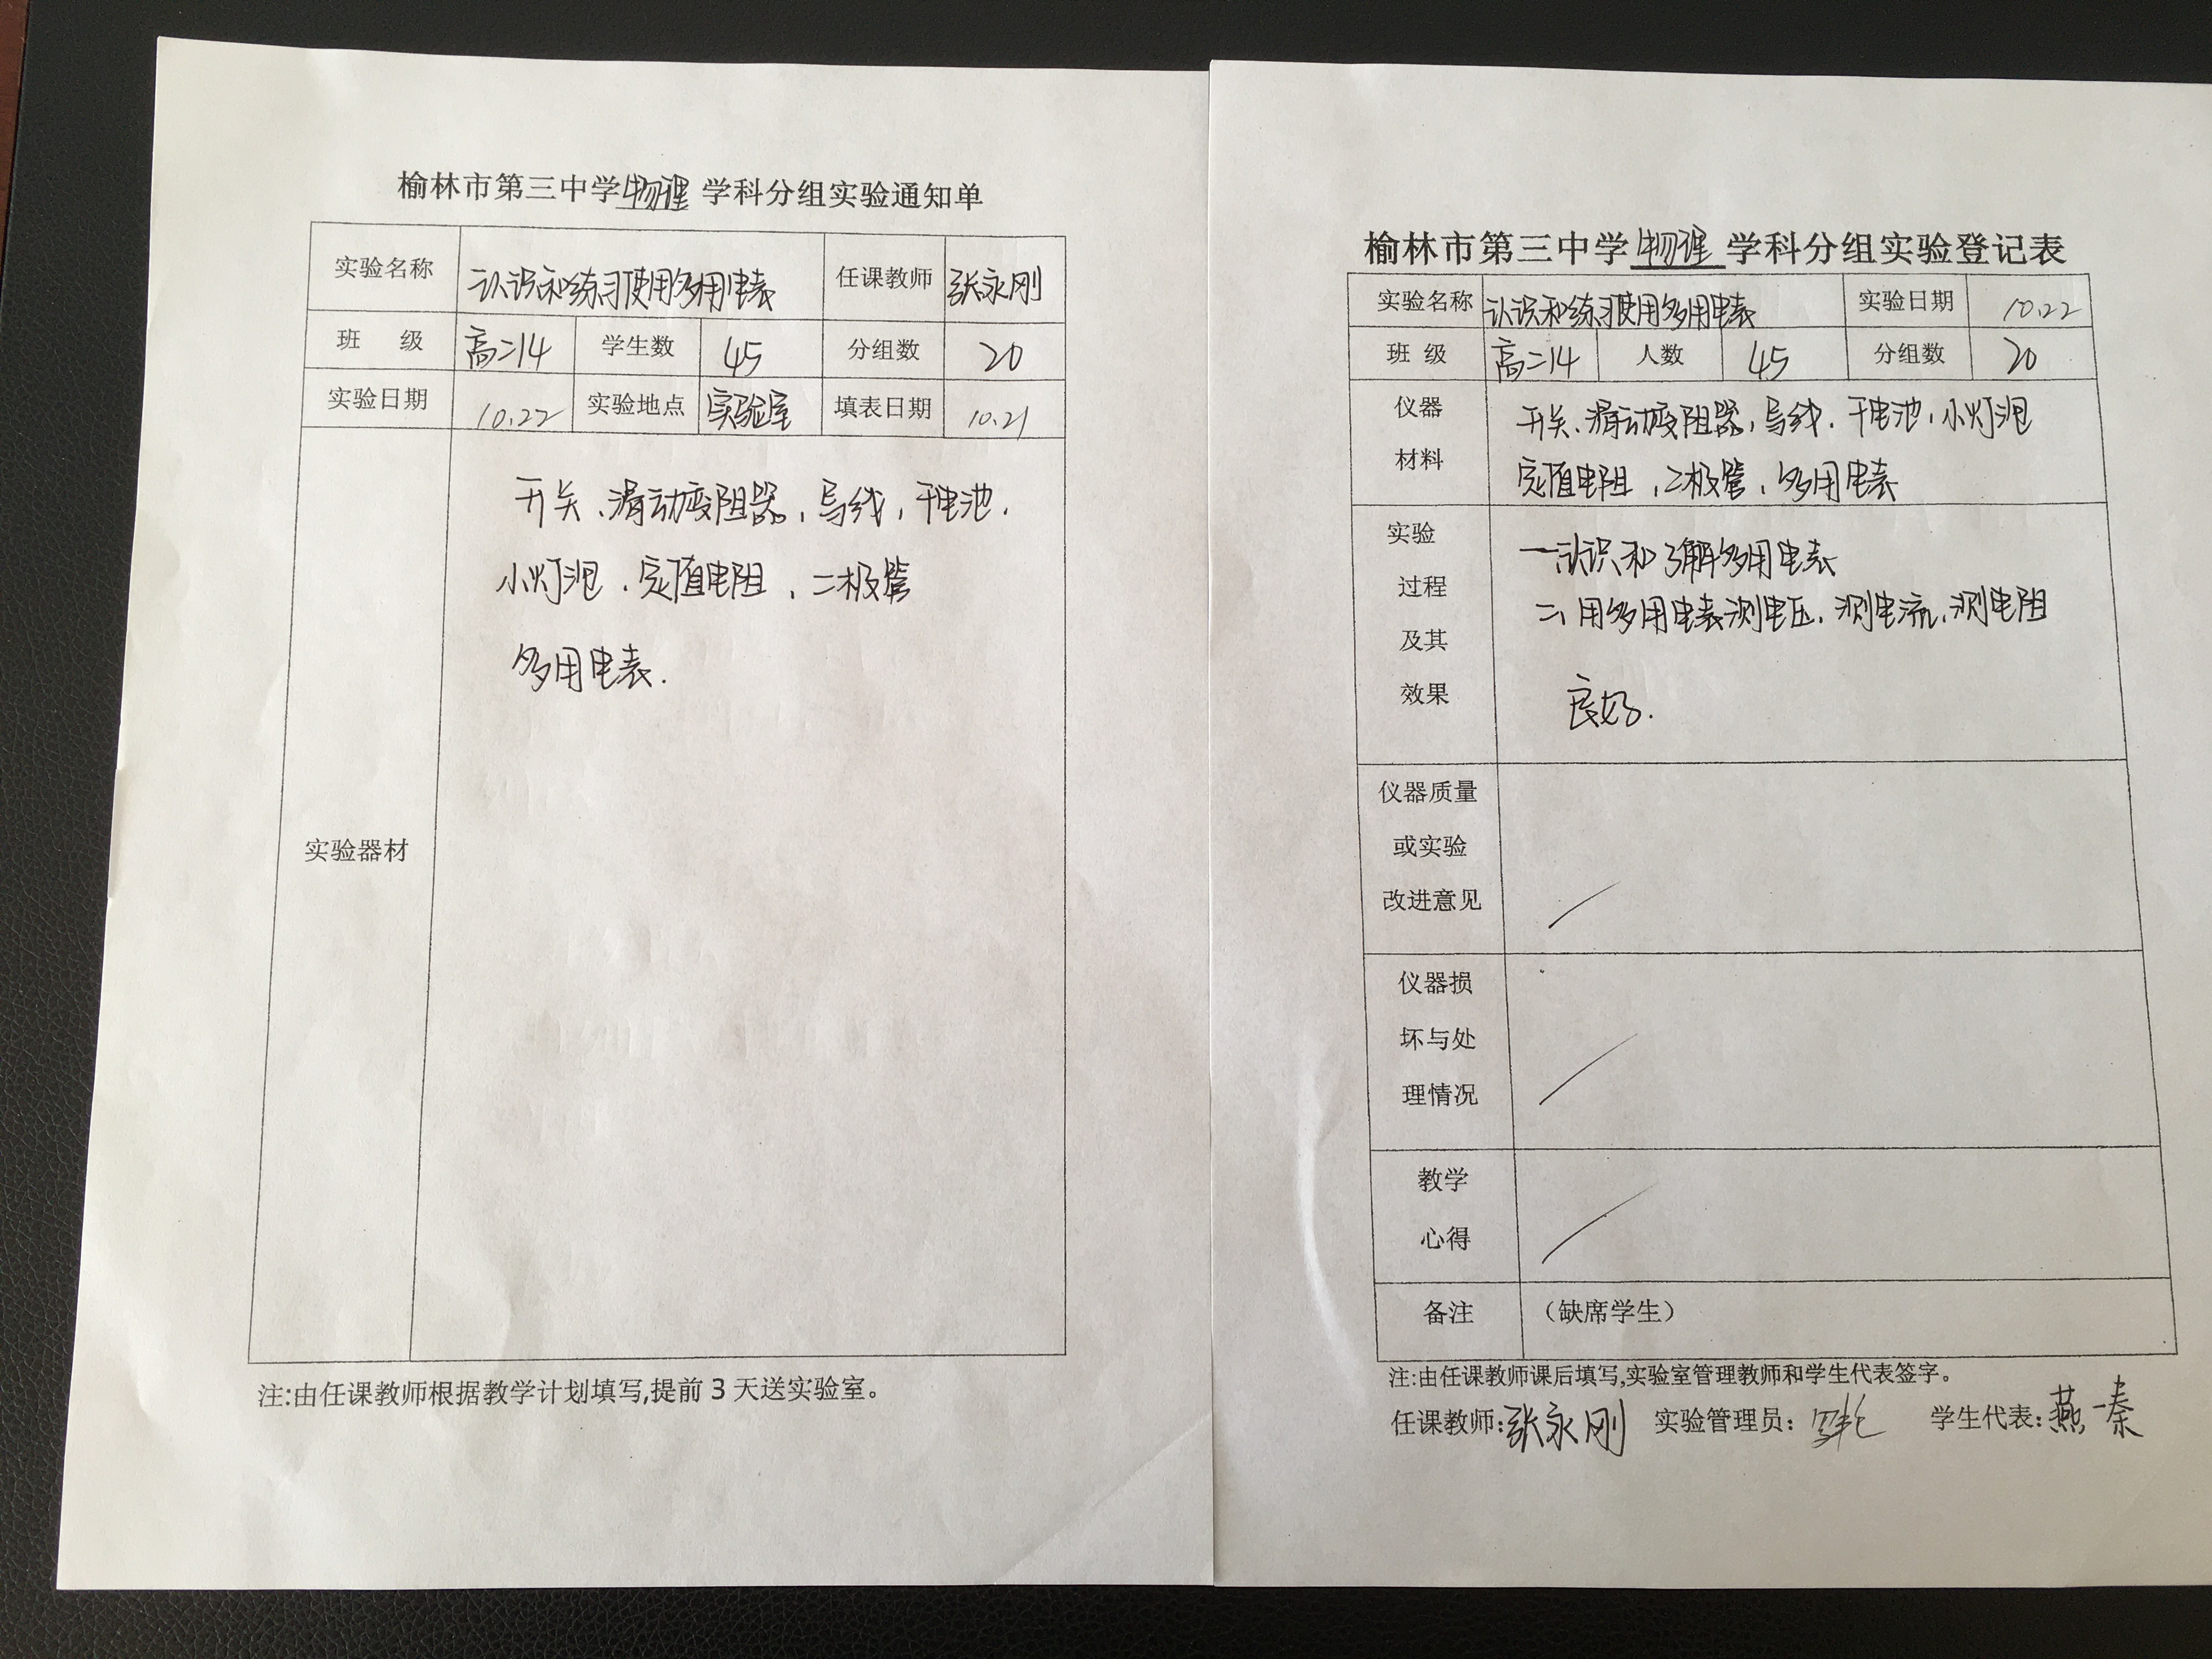 榆林市第三中学物理 学科分组实验通知单
实验名称 认识和练习使用多用电表 任课教师 张永刚
班 级 高二14 学生数 45 分组数 20
实验日期 10.22 实验地点 实验室 填表日期 10.21
实验器材
开关、滑动变阻器,导线,干电池.
小灯泡.定值电阻,二极管
多用电表.
注:由任课教师根据教学计划填写,提前3天送实验室。
榆林市第三中学物理学科分组实验登记表
实验名称 认识和练习使用多用电表 实验日期 10.22
班 级 高二14 人数 45 分组数 20
仪器
材料
开关、滑动变阻器,导线.干电池,小灯泡
定值电阻,二极管,多用电表
实验
过程
及其
效果
一认识和了解多用电表
二、用多用电表测电压,测电流,测电阻
良好.
仪器质量
或实验
改进意见
仪器损
坏与处
理情况
教学
心得
备注 (缺席学生)
注:由任课教师课后填写,实验室管理教师和学生代表签字。
任课教师:张永刚 实验管理员: 学生代表:燕一秦